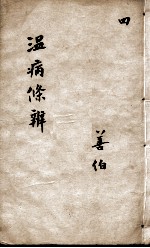 四
溫病條辨
善伯